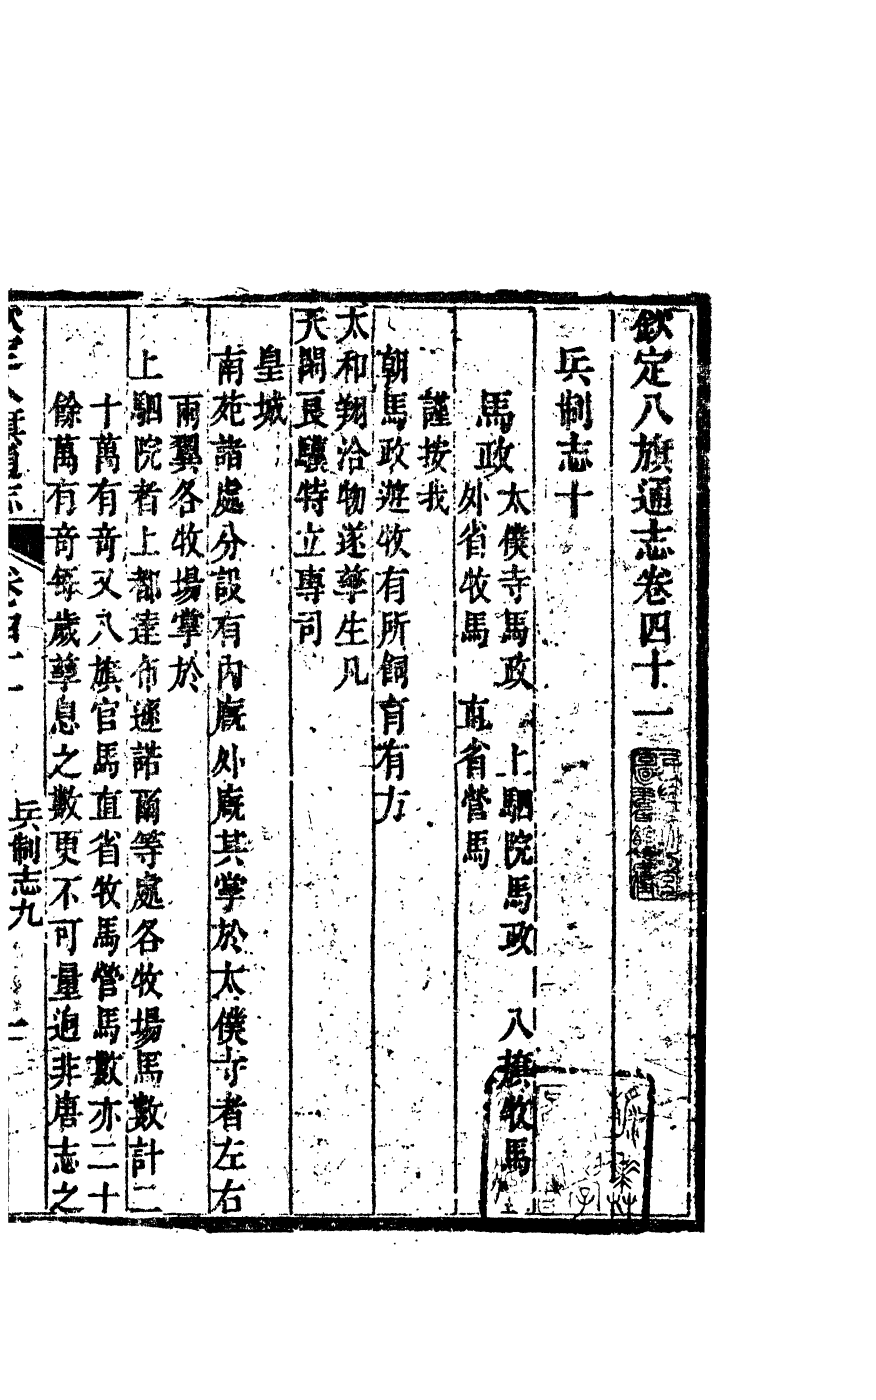 欽定八旗通志卷四十一
兵制志十
馬政
太僕寺馬政 上駟院馬政 八旗牧馬
外省牧馬 直省營馬
謹按我
朝馬政遊牧有所飼育有方
太和翔洽物遂孳生凡
天閑良驥特立專司
皇城
南苑諸處分設有內廐外廐其掌於太僕寺者左右
兩翼各牧場掌於
上駟院者上都達布遜諾爾等處各牧場馬數計二
十萬有奇又八旗官馬直省牧馬營馬數亦二十
餘萬有奇每歲孳息之數更不可量迥非唐志之
欽定八旗通志
卷四十一
兵制志九
一